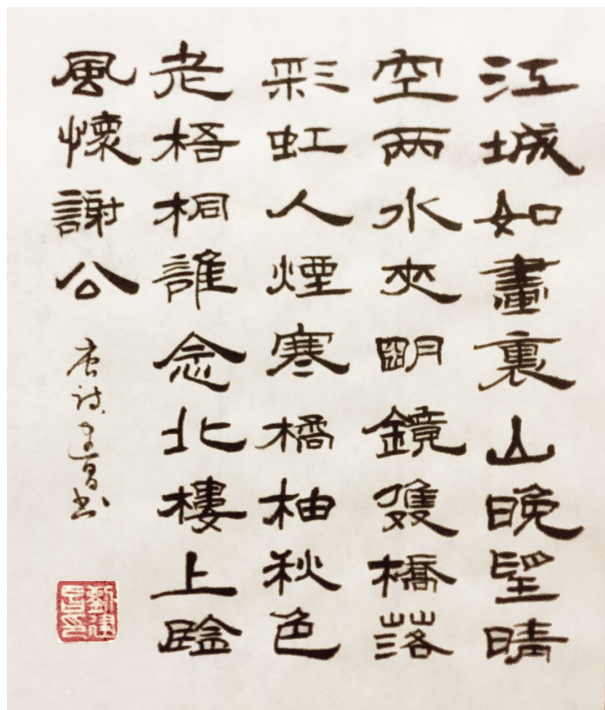 江城如畫裏山晚望晴
空兩水夾明鏡雙橋落
彩虹人煙寒橘柚秋色
老梧桐誰念北樓上臨
風懷謝公
唐詩建昌书
劉建昌印